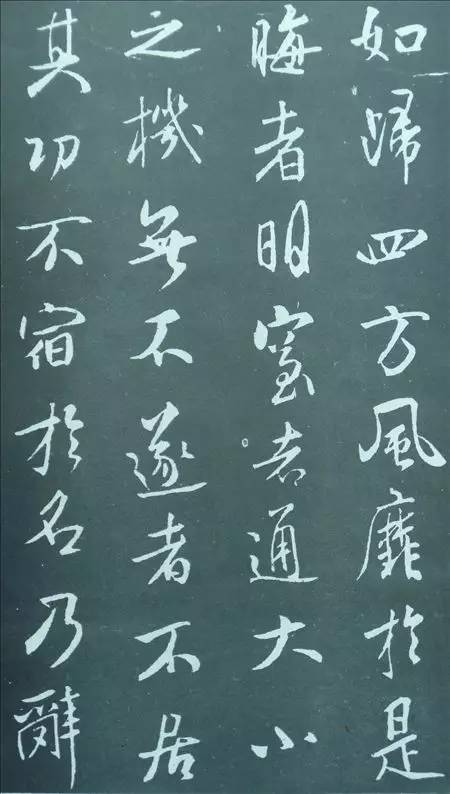 如歸四方風靡於是
晦者明窒者通大小
之機無不遂者不居
其功不宿於名乃辭